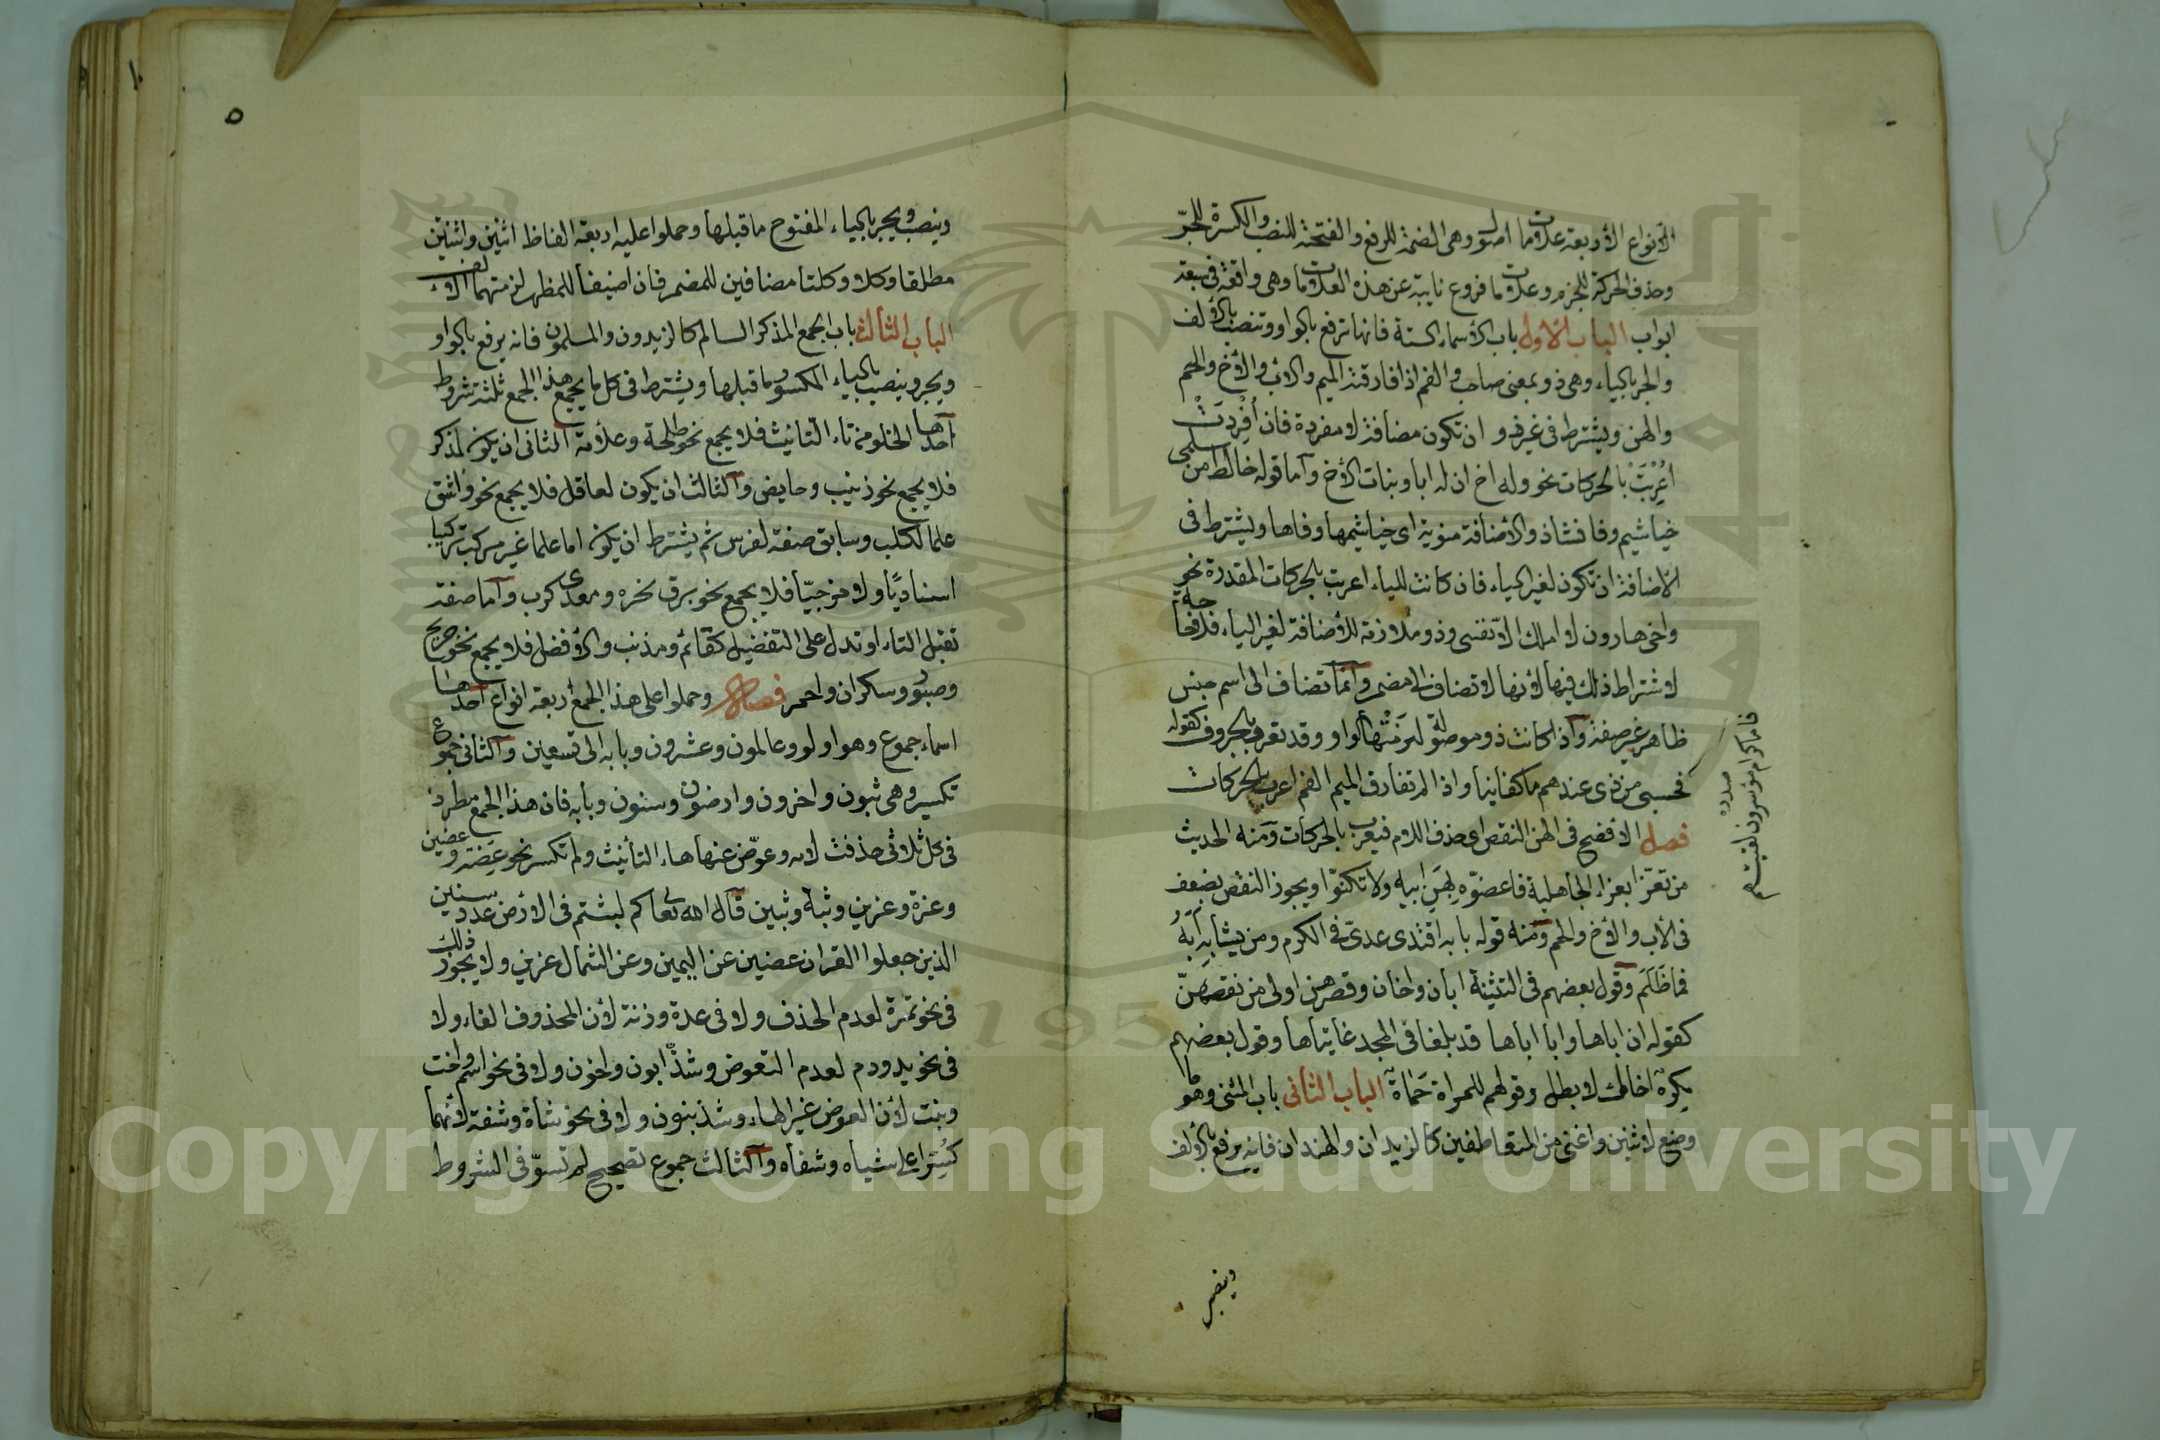 الأنواع الأربعة علامات أصول وهى الضمة للرفع والفتحة للنصب والكسرة للجرّ
وحذف الحركة للجزم وعلامات فروع نايبة عن هذه العلامات وهى واقعة فى سبعة
ابواب الباب الاول باب الأسماء الستة فانها ترفع بالواو وتنصب بالألف
والجر بالياء وهى ذو بمعنى صاحب والفم اذا فارقته الميم والاب والأخ والحم
والهن ويشترط فى غير ذو ان تكون مضافة لا مفردة فان أُفْرِدَتْ
أُعْرِبَتْ بالحركات نحو وله اخ ان له ابا وبنات الأخ وأما قوله خالط من سلمى
خياشيم وفا فشاذ والأضافة منوية اى خياشيمها وفاها ويشترط فى
الأضافة ان تكون لغير الياء فان كانت للياء اعربت بالحركات المقدرة نحو
واخى هارون لا املك الاّ نفسى وذو ملازمة للأضافة لغير الياء فلا حاجة
لاشتراط ذلك فيها لأنها لا تضاف الى مضمر وانما تضاف الى اسم جنس
ظاهر غير صفة واذا كانت ذو موصولة لزمتها الواو وقد تعرب بالحروف كقوله
فحسبى من ذى عندهم ما كفانيا واذا لم تفارق الميم الفم اعرب بالحركات
فصل الافصح فى الهن النقص اى حذف اللام فيعرب بالحركات ومنه الحديث
من تعزّا بعزاء الجاهلية فاعضوّه بِهَنِ ابيه ولا تكنوّا ويجوز النقص بضعف
فى الأب والأخ والحم ومنه قوله بابه اقتدى عدىّ فى الكرم ومن يشابه أَبَهُ
فما ظَلَم وقول بعضهم فى التثنية ابان واخان وقصرهن اولى من نقصهنّ
كقوله ان اباها وابا اباها قد بلغا فى المجد غايتاها وقول بعضهم
مكره اخاك لا بطل وقولهم للمراة حَماةٌ الباب الثانى باب المثنى وهو ما
وضع لاثنين واغنى عن المتعاطفين كالزيدان والهندان فانه يرفع بالألف
وينصب
فاما كرام موسرون لقيتهم
صدره
٥
وينصب ويجر بالياء المفتوح ما قبلها وحملوا عليه اربعة الفاظ اثنين واثنتين
مطلقا وكلا وكلتا مضافين للمضمر فان اضيفا للمظهر لزمتهما الالف
الباب الثالث باب الجمع المذكر السالم كالزيدون والمسلمون فانه يرفع بالواو
ويجر وينصب بالياء المكسور ما قبلها ويشترط فى كل ما يجمع هذا الجمع ثلثة شروط
أحدها الخلو من تاء التأنيث فلا يجمع نحو طلحة وعلامة الثانى ان يكون لمذكر
فلا يجمع نحو زينب وحايض والثالث ان يكون لعاقل فلا يجمع نحو واشق
علما لكلب وسابق صفة لفرس ثم يشترط ان يكون اما علما غير مركب تركيبا
اسناديًا ولا مزجيّا فلا يجمع نحو برق نحره ومعدى كرب وأما صفة
تقبل التاء او تدل على التفضيل كقائم ومذنب والأفضل فلا يجمع نحو جريح
وصبور وسكران واحمر فصل وحملوا على هذا الجمع أربعة انواع أحدها
اسماء جموع وهو اولو وعالمون وعشرون وبابه الى تسعين والثانى جموع
تكسير وهى بنون واحرون وارضون وسنون وبابه فان هذا الجمع مطرد
فى كل ثلاثى حذفت لامه وعوّض عنها هاء التأنيث ولم تكسر نحو عِضة وعضين
وعزة وعزين وثبة وثبين قال الله تعا كم لبثتم فى الأرض عدد سنين
الذين جعلوا القران عضين عن اليمين وعن الشمال عزين ولا يجوز ذلك
فى نحو تمرة لعدم الحذف ولا فى عدة وزنة لأن المحذوف الفاء ولا
فى نحو يد ودم لعدم التعوض وشذّ ابون واخون ولا فى نحو اسم واخت
وبنت لأن العوض غير الهاء وشذ بنون ولا فى نحو شاة وشفة لانهما
كُسّرا على شياه وشفاه والثالث جموع تصحيح لم تستوف الشروط
Copyright © King Saud University
1957